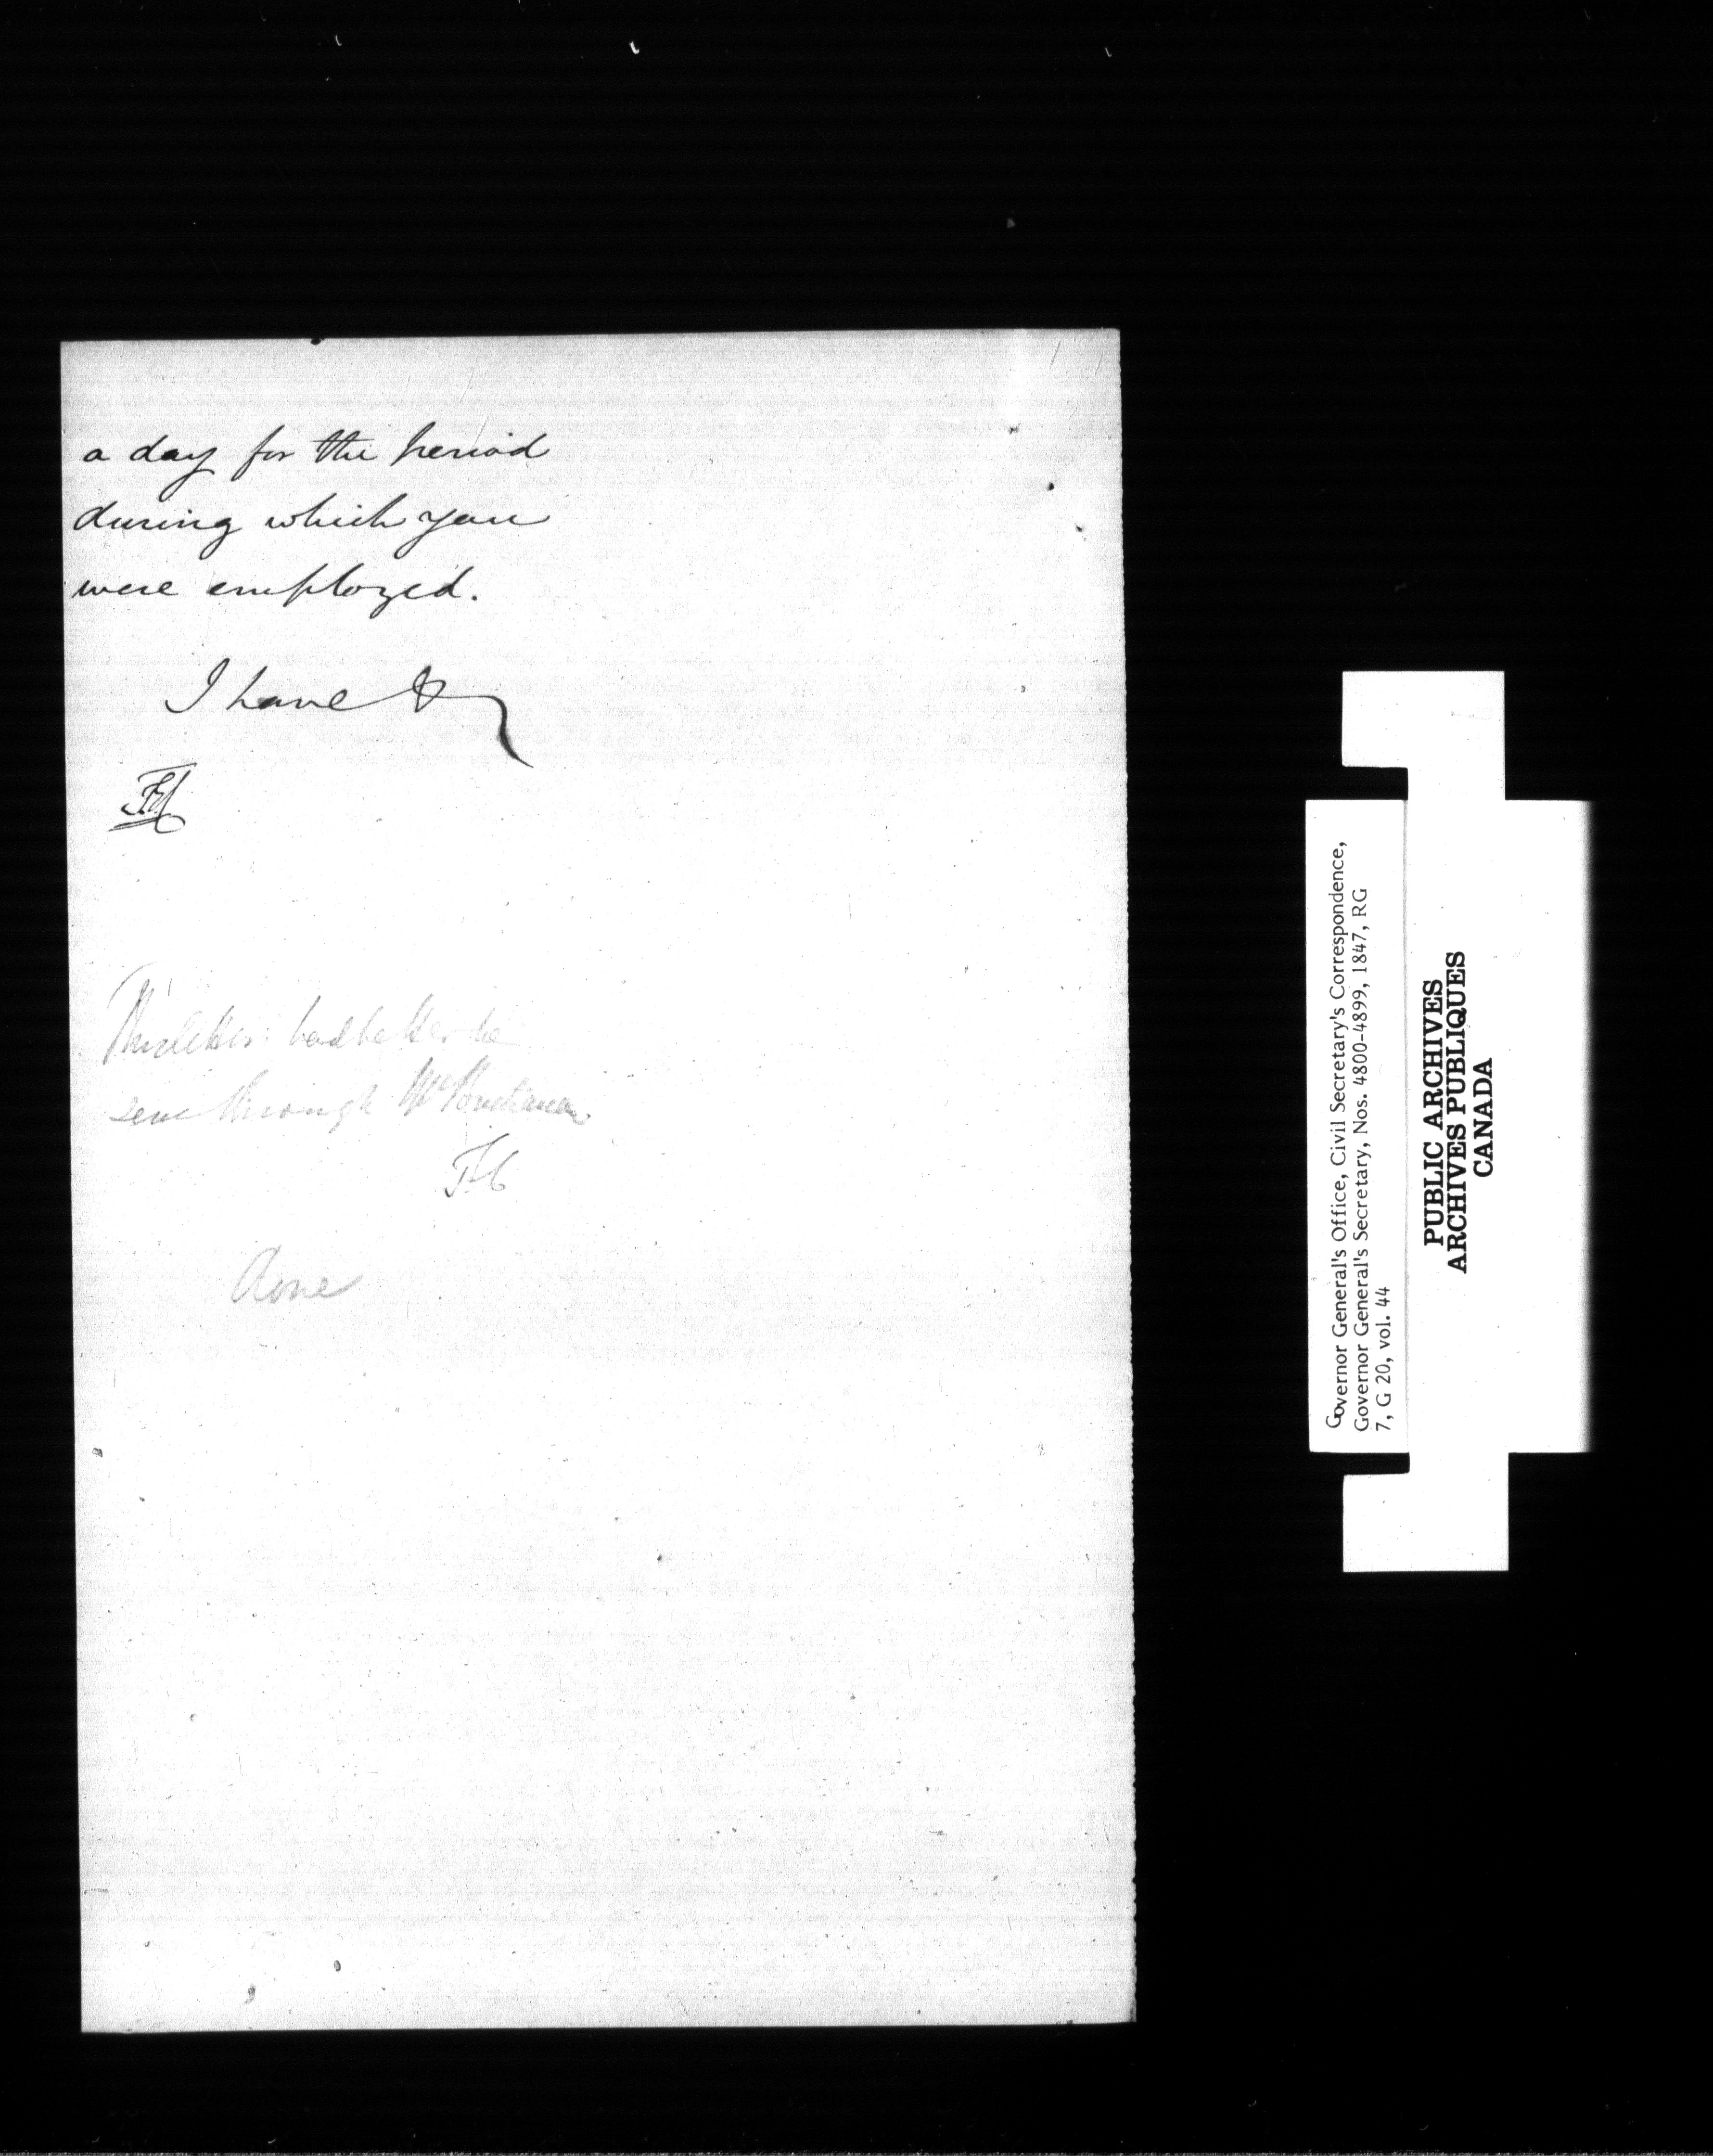 a day for the period
during which you
were employed.
I have &c
This letter had better be
sent through Mr Buchanan
Done
Governor General's Office, Civil Secretary's Correspondence,
Governor General's Secretary, Nos. 4800-4899, 1847, RG
7, G 20, vol. 44
PUBLIC ARCHIVES
ARCHIVES PUBLIQUES
CANADA